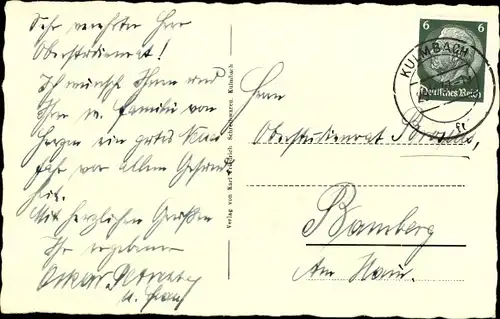 Sehr verehrter Herr
Oberstudienrat!
Ich wünsche Ihnen und
Ihrer w. Familie von
Herzen ein gutes Neues
Jahr vor allem Gesund-
heit.
Mit herzlichen Grüßen
Ihr ergebener
Oskar
u. Frau
Verlag von Karl Friedrich Schreibwaren, Kulmbach
6 6
Deutsches Reich
KULMBACH
Herrn
Oberstudienrat
Bamberg
Am Hain.